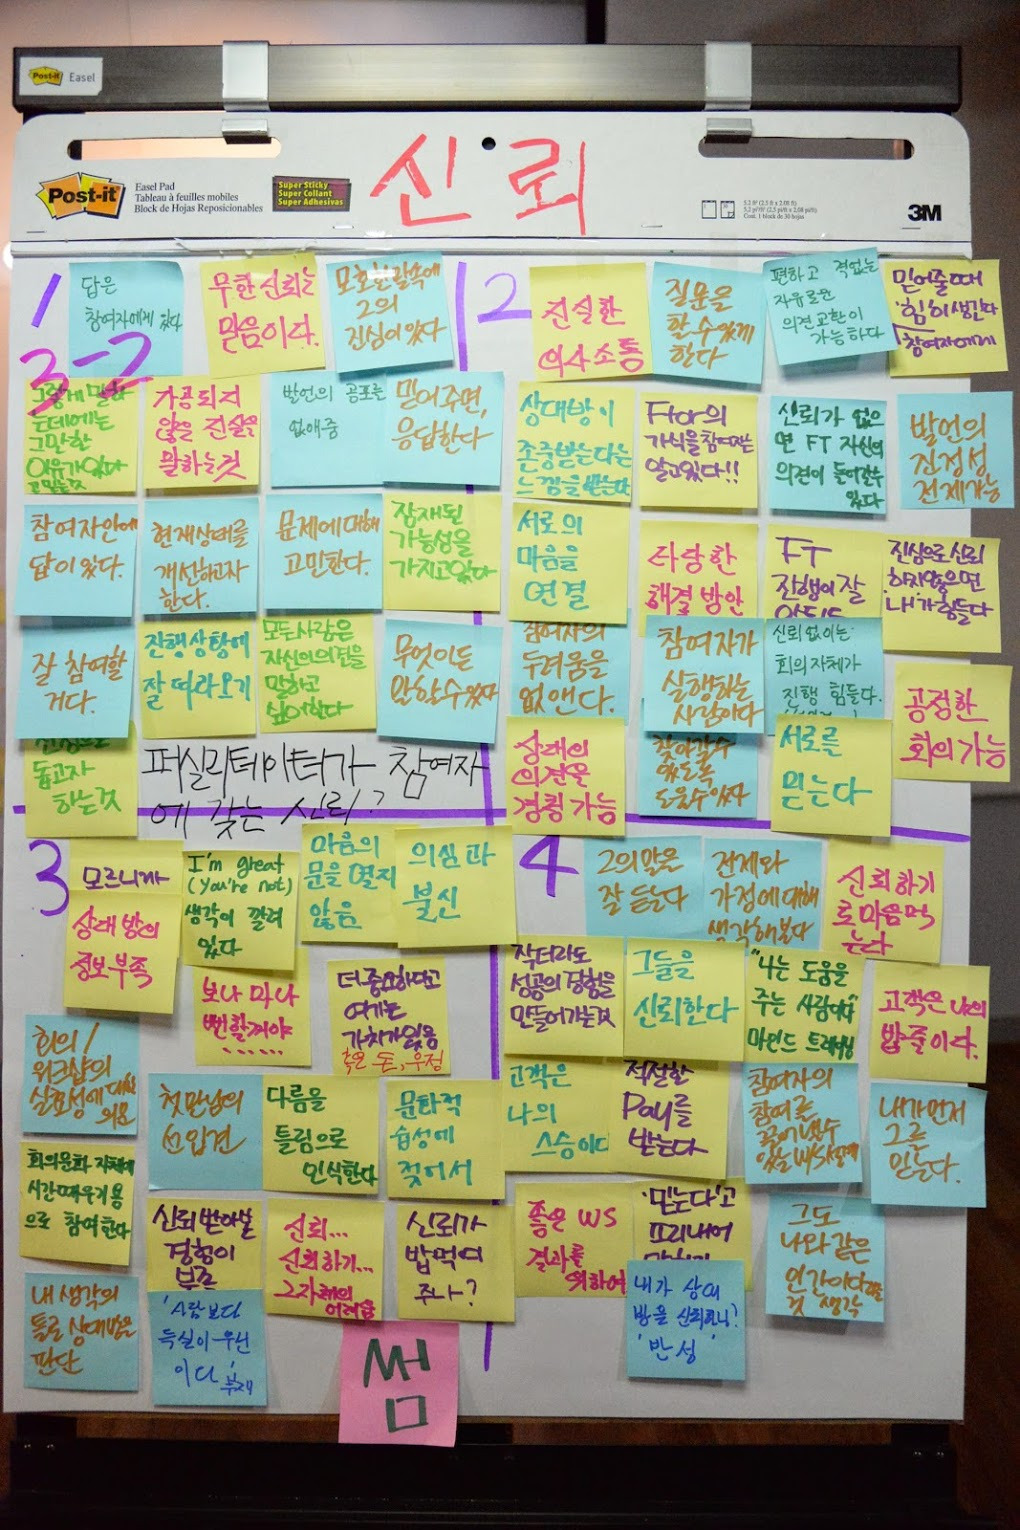 Post-it Easel
신뢰
Post-it
Easel Pad
Tableau à feuilles mobiles
Block de Hojas Reposicionables
Super Sticky
Super Collant
Super Adhesivas
3M
1
답은
참여자에게 있다
무한신뢰는
믿음이다.
모호한 말속에
그의
진심이 있다
3-2
그렇게 말하
는데에는
그만한
이유가 있다
고 믿는 것
가공되지
않은 진실을
말하는것
발언의 공포를
없애줌
믿어주면,
응답한다
참여자안에
답이 있다.
현재상태를
개선하고자
한다.
문제에 대해
고민한다.
잠재된
가능성을
가지고있다
잘 참여할
거다.
진행상황에
잘 따라오기
모든사람은
자신의의견을
말하고
싶어한다
무엇이든
말할수있다
돕고자
하는것
퍼실리테이터가 참여자
에 갖는 신뢰?
2
진실한
의사소통
질문을
할 수 있게
한다
편하고 격없는
자유로운
의견교환이
가능하다
믿어줄때
힘이생긴다
참여자에게
상대방이
존중받는다는
느낌을 받는다
Ftor의
가식을 참여자는
알고있다!!
신뢰가 없으
면 FT 자신의
의견이 들어갈수
있다
발언의
진정성
전제가능
서로의
마음을
연결
다양한
해결 방안
FT
진행이 잘
진심으로 신뢰
하지않으면
내가 힘들다
참여자의
두려움을
없앤다.
참여자가
실행하는
사람이다
신뢰 없이는
회의 자체가
진행 힘들다.
공정한
회의 가능
상대의
의견을
경청 가능
찾아갈수
있도록
도울수있다
서로를
믿는다
3
모르니까
상대방의
정보부족
I'm great
(You're not)
생각이 깔려
있다
마음의
문을 열지
않음
의심과
불신
보나마나
뻔할꺼야
......
더 중요하다고
여기는
가치가있음
혹은 돈, 우정
회의/
워크샵의
실효성에 대한
의문
첫만남의
선입견
다름을
틀림으로
인식한다
문화적
습성에
젖어서
회의문화 자체에
시간때우기용
으로 참여한다
신뢰받아본
경험이
부족
신뢰...
신뢰하기...
그자체의
어려움
신뢰가
밥먹여
주나?
내 생각의
틀로 상대방을
판단
'사람보다
득실이 우선
이다'
부재
썸
4
그의 말을
잘 듣는다
전제와
가정에 대해
생각해본다
신뢰하기
로 마음먹
는다
작더라도
성공의 경험을
만들어가는것
그들을
신뢰한다
"나는 도움을
주는 사람이다"
마인드 트레이닝
고객은 나의
밥줄이다.
고객은
나의
스승이다
적절한
Pay를
받는다
참여자의
참여를
있는 W/S설계
내가먼저
그를
믿는다.
좋은 WS
결과를
위하여
'믿는다'고
끄집어내어
내가 상대
방을 신뢰하나?
'반성'
그도
나와 같은
인간이다라는
것 생각